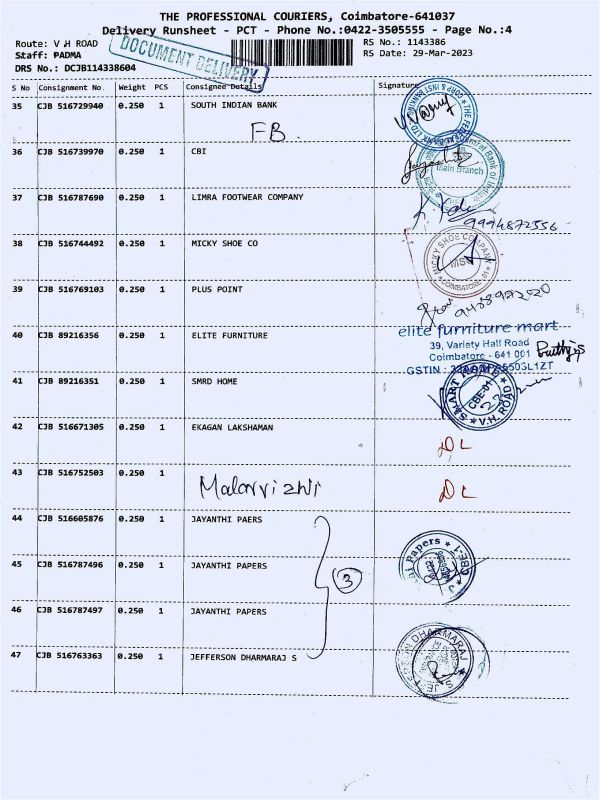 THE PROFESSIONAL COURIERS, Coimbatore-641037
Delivery Runsheet - PCT - Phone No.:0422-3505555 - Page No.:4
Route: V H ROAD
RS No.: 1143386
Staff: PADMA
RS Date: 29-Mar-2023
DRS No.: DCJB114338604
DOCUMENT DELIVERY
S No Consignment No. Weight PCS Consignee Details Signature
35 CJB 516729940 0.250 1 SOUTH INDIAN BANK
FB.
36 CJB 516739970 0.250 1 CBI
Main Branch
37 CJB 516787690 0.250 1 LIMRA FOOTWEAR COMPANY
9994872556
38 CJB 516744492 0.250 1 MICKY SHOE CO
MICKY SHOE COMPANY
MSC
COIMBATORE
39 CJB 516769103 0.250 1 PLUS POINT
40 CJB 89216356 0.250 1 ELITE FURNITURE
elite furniture mart
39, Variety Hall Road
Coimbatore - 641 001
GSTIN :
41 CJB 89216351 0.250 1 SMRD HOME
SMART
CBE-01
V.H. ROAD
42 CJB 516671305 0.250 1 EKAGAN LAKSHAMAN
DL
43 CJB 516752503 0.250 1 Malarvizhi
DL
44 CJB 516605876 0.250 1 JAYANTHI PAERS
45 CJB 516787496 0.250 1 JAYANTHI PAPERS
3
Papers
CBE-1
46 CJB 516787497 0.250 1 JAYANTHI PAPERS
47 CJB 516763363 0.250 1 JEFFERSON DHARMARAJ S
DHARMARAJ